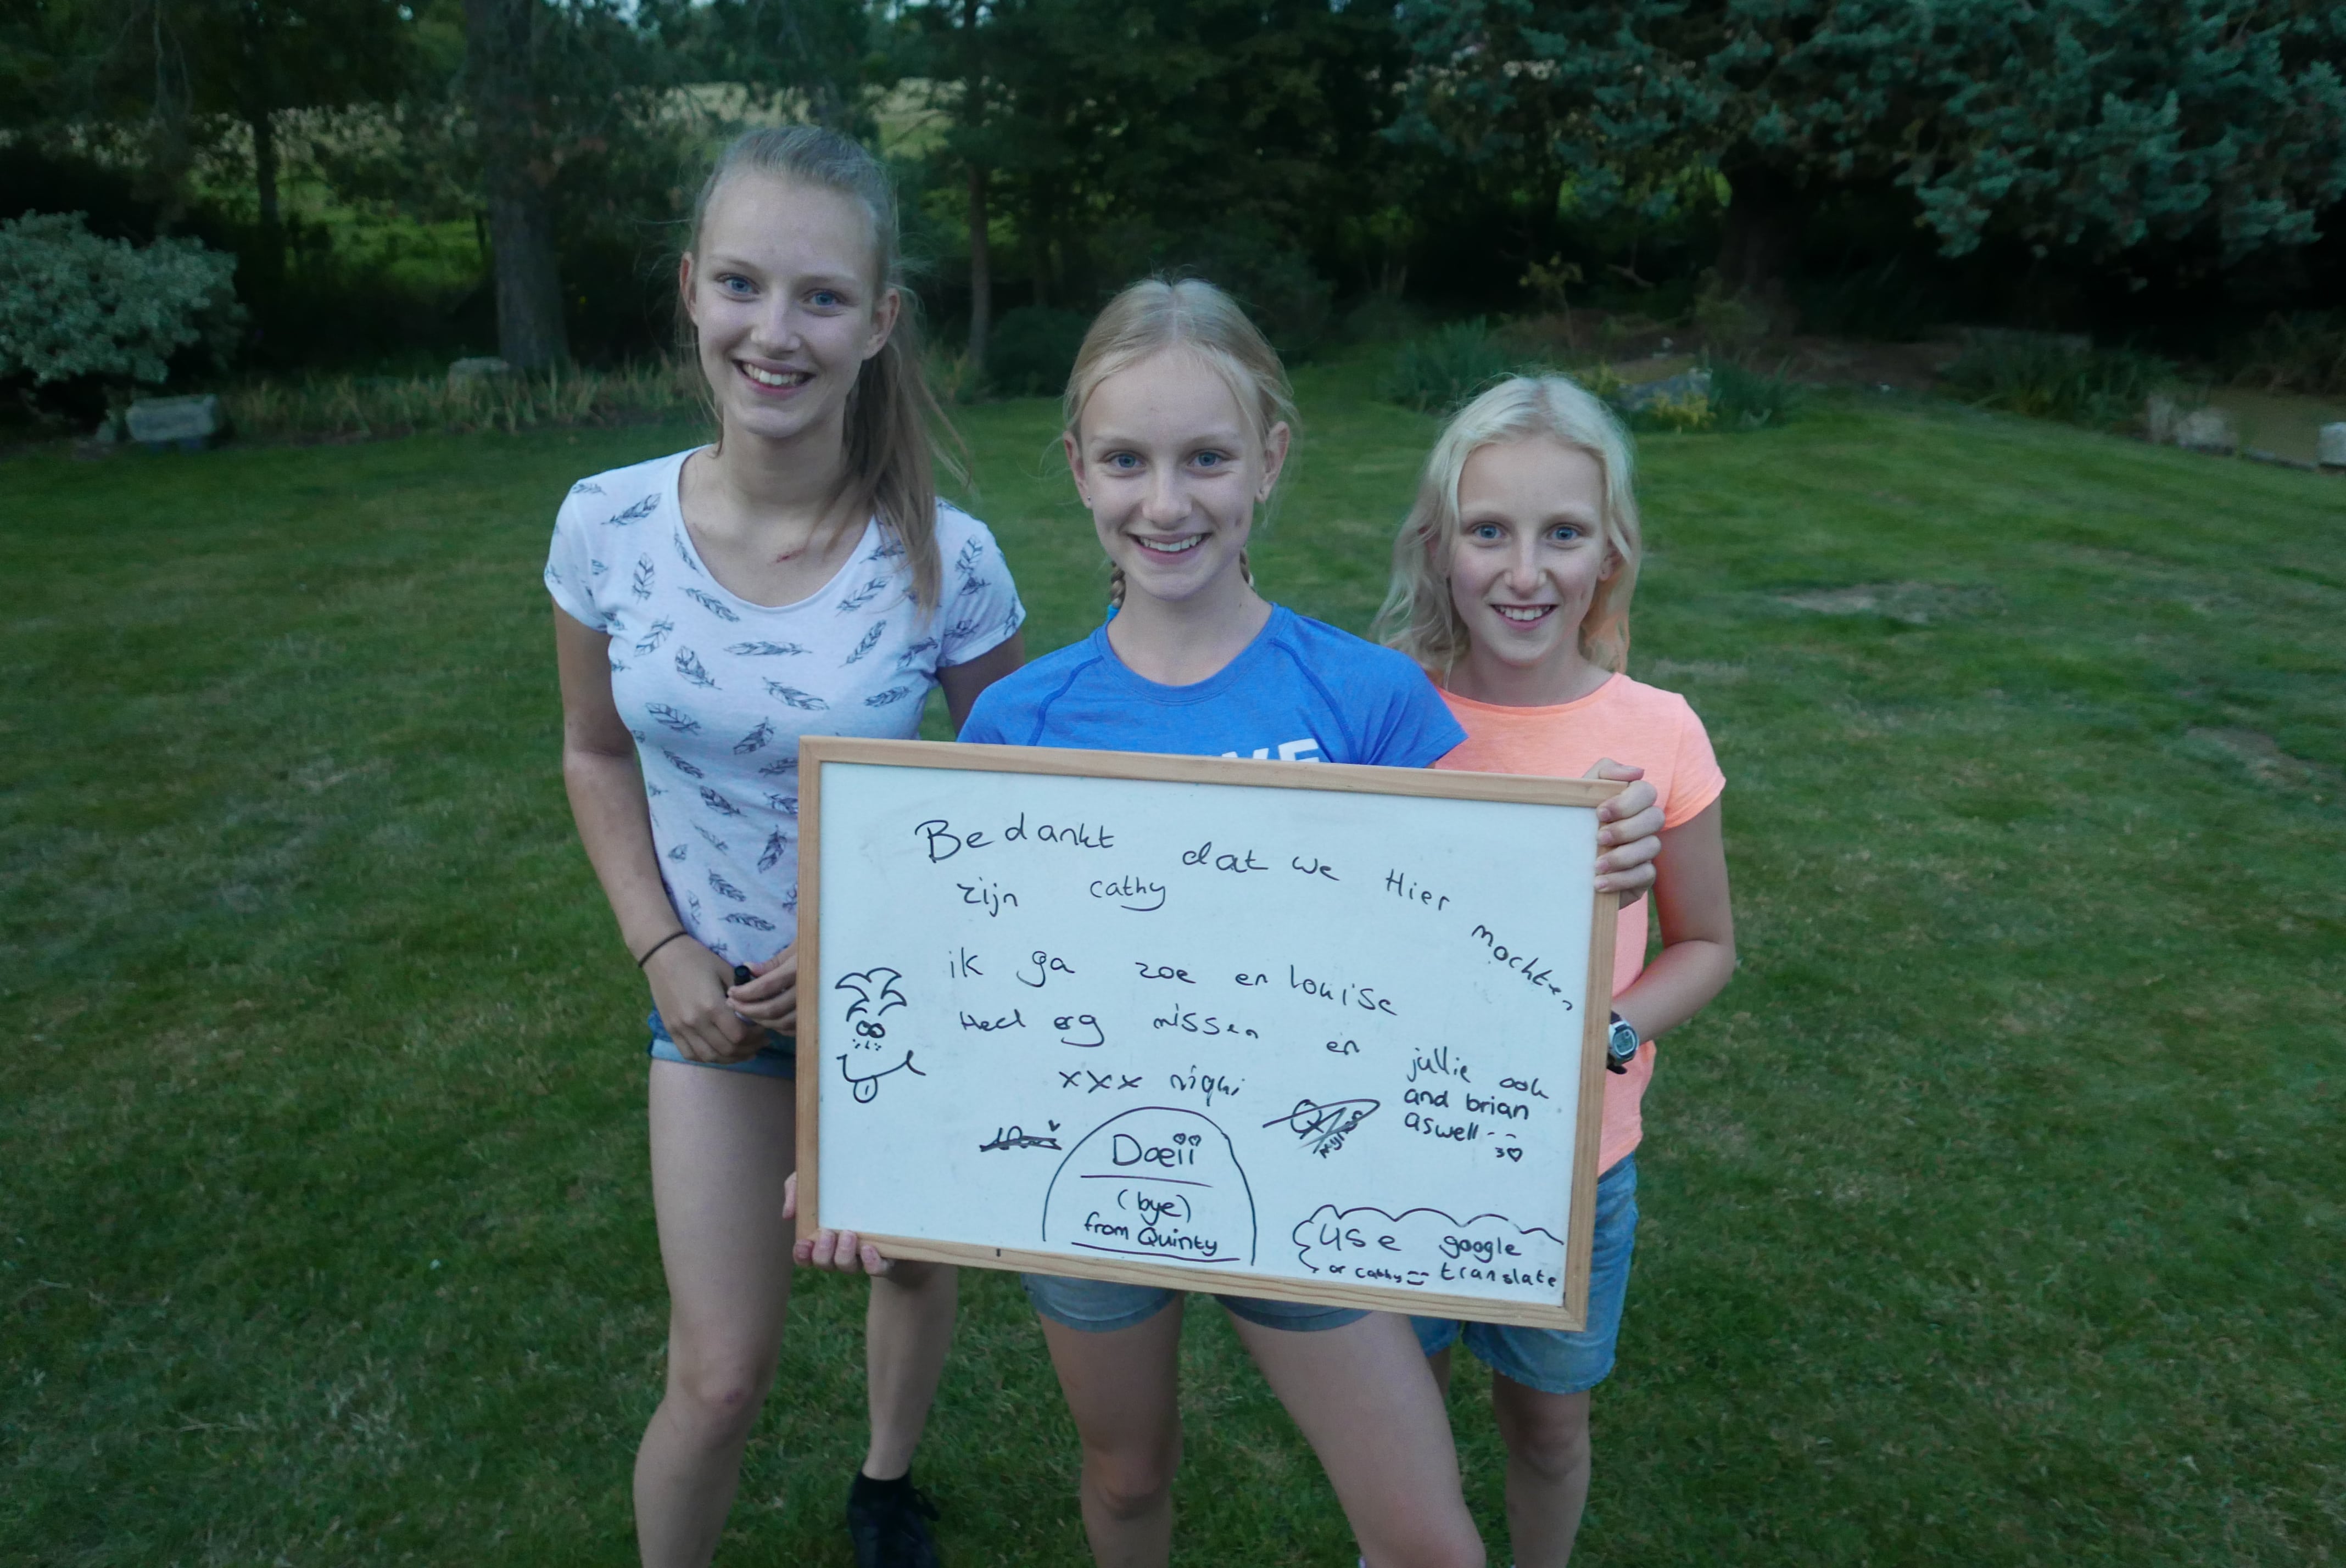 Bedankt dat we Hier mochten
zijn cathy
ik ga zoe en louise
Heel erg missen en jullie ook
and brian
aswell
xxx niqki
Doeii
(bye)
from Quinty
use google
or cathy translate